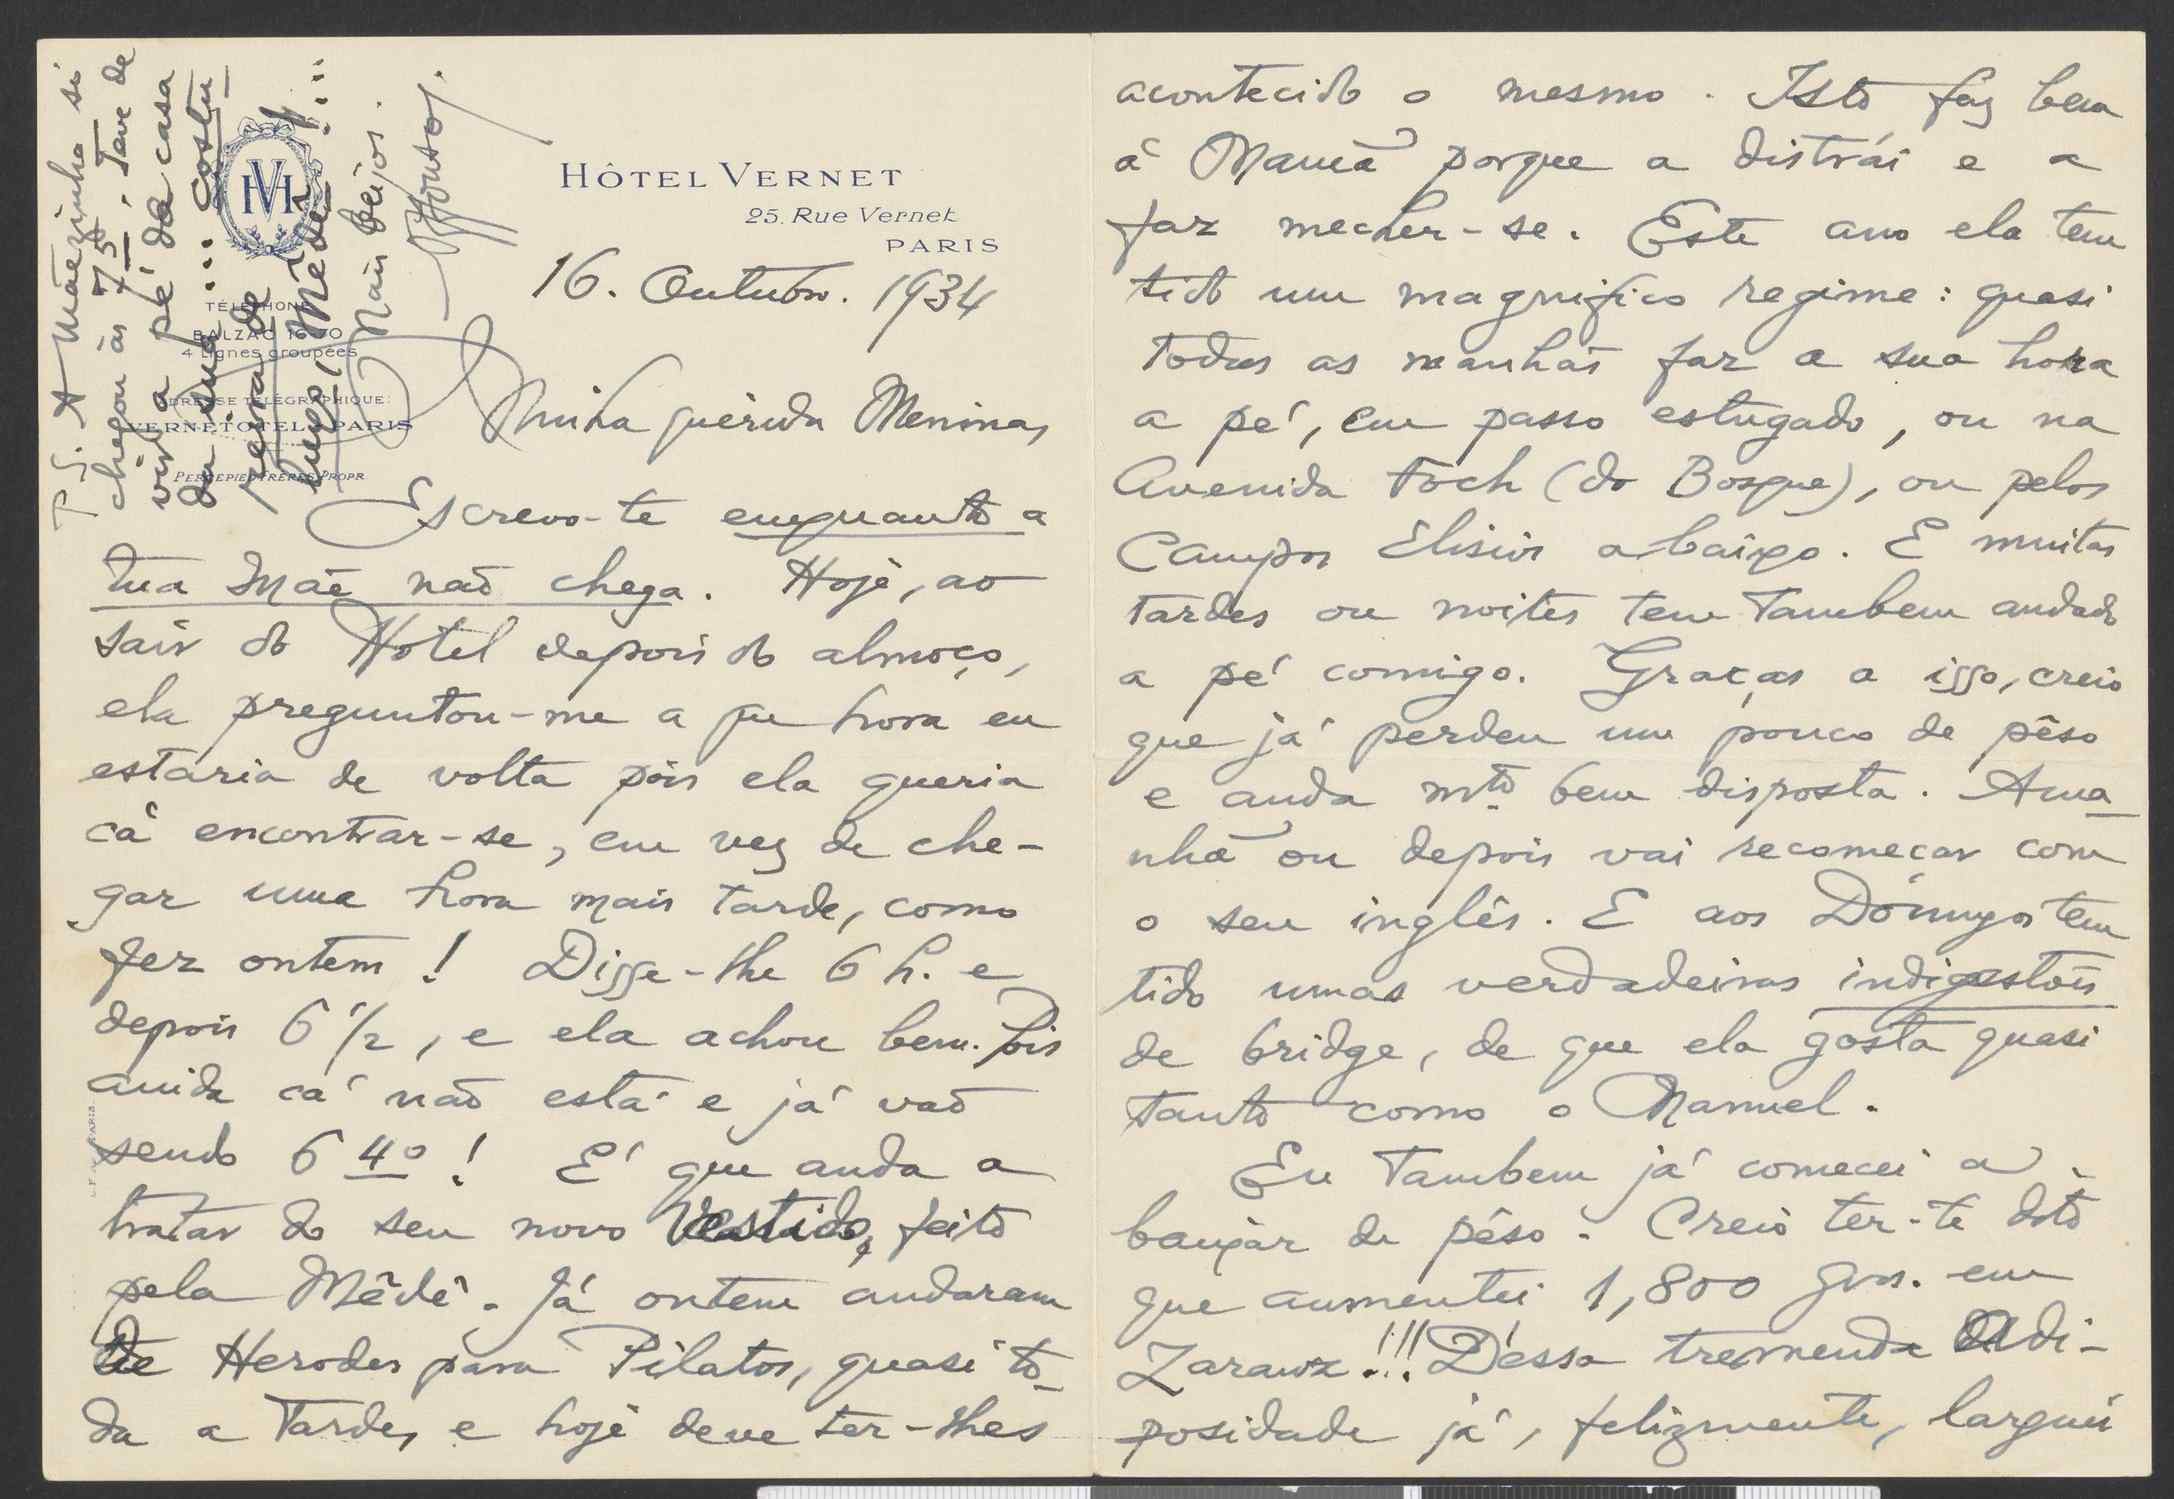 HÔTEL VERNET
25. Rue Vernet
PARIS
TÉLÉPHONE
BALZAC 16-70
4 Lignes groupées
ADRESSE TÉLÉGRAPHIQUE:
VERNETOTEL-PARIS
PERCEPIED FRÈRES PROPR
16. Outubro. 1934
Minha querida Menina,
Escrevo-te emquanto a
tua Mãe não chega. Hoje, ao
sair do Hotel depois do almoço,
ela preguntou-me a que hora eu
estaria de volta pois ela queria
cá encontrar-se, em vez de che-
gar uma hora mais tarde, como
fez ontem! Disse-lhe 6 h. e
depois 6 1/2, e ela achou bem. Pois
ainda cá não está e já vão
sendo 6 40! É que anda a
tratar do seu novo Vestido, feito
pela Mêdê. Já ontem andaram
de Herodes para Pilatos, quasi to-
da a tarde, e hoje deve ter-lhes
acontecido o mesmo. Isto faz bem
á Mamã porque a distrái e a
faz mecher-se. Este ano ela tem
tido um magnifico regime: quasi
todas as manhãs faz a sua hora
a pé, em passo estugado, ou na
Avenida Foch (do Bosque), ou pelos
Campos Elisios abaixo. E muitas
tardes ou noites tem tambem andado
a pé comigo. Graças a isso, creio
que já perdeu um pouco de pêso
e anda mto bem disposta. Ama-
nhã ou depois vai recomeçar com
o seu inglês. E aos Domingos tem
tido umas verdadeiras indigestões
de bridge, de que ela gosta quasi
tanto como o Manuel.
Eu tambem já comecei a
baixar de pêso. Creio ter-te dito
que aumentei 1,800 grs. em
Zarauz!!! Dessa tremenda Adi-
posidade já, felizmente, larguei
P.S. A Mãezinha só
chegou ás 7 5. Teve de
vir a pé da casa
da sua ... costu
reira de
luxo, Mêdê!...
Mais beijos.
Affonso.